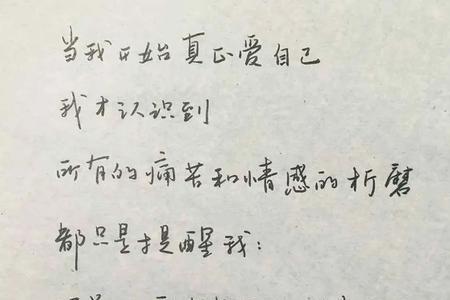 当我开始真正爱自己
我才认识到
所有的痛苦和情感的折磨
都只是提醒我：